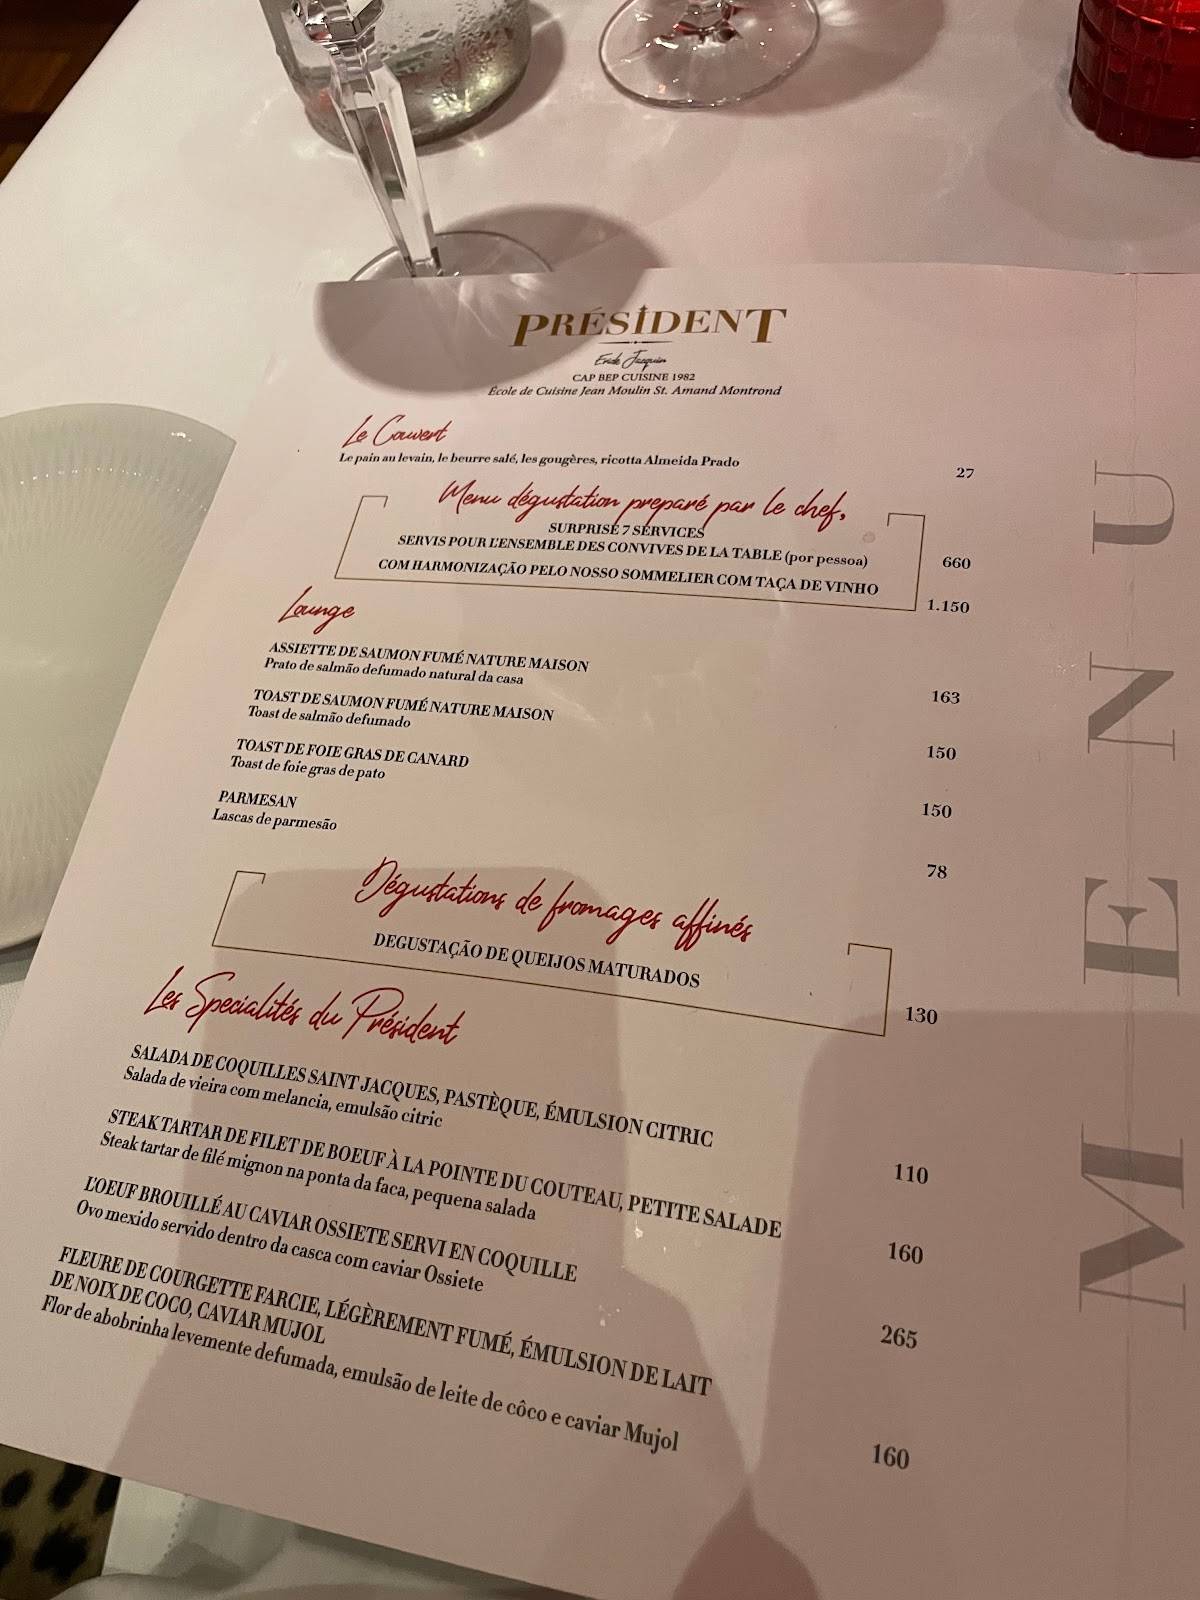 PRÉSIDENT
Erick Jacquin
CAP BEP CUISINE 1982
École de Cuisine Jean Moulin St. Amand Montrond
Le Couvert
Le pain au levain, le beurre salé, les gougères, ricotta Almeida Prado 27
Menu dégustation preparé par le chef,
SURPRISE 7 SERVICES
SERVIS POUR L'ENSEMBLE DES CONVIVES DE LA TABLE (por pessoa) 660
COM HARMONIZAÇÃO PELO NOSSO SOMMELIER COM TAÇA DE VINHO 1.150
Lounge
ASSIETTE DE SAUMON FUMÉ NATURE MAISON
Prato de salmão defumado natural da casa 163
TOAST DE SAUMON FUMÉ NATURE MAISON
Toast de salmão defumado 150
TOAST DE FOIE GRAS DE CANARD
Toast de foie gras de pato 150
PARMESAN
Lascas de parmesão 78
Dégustations de fromages affinés
DEGUSTAÇÃO DE QUEIJOS MATURADOS 130
Les Specialités du Président
SALADA DE COQUILLES SAINT JACQUES, PASTÈQUE, ÉMULSION CITRIC
Salada de vieira com melancia, emulsão citric 110
STEAK TARTAR DE FILET DE BOEUF À LA POINTE DU COUTEAU, PETITE SALADE
Steak tartar de filé mignon na ponta da faca, pequena salada 160
L'OEUF BROUILLÉ AU CAVIAR OSSIETE SERVI EN COQUILLE
Ovo mexido servido dentro da casca com caviar Ossiete 265
FLEURE DE COURGETTE FARCIE, LÉGÈREMENT FUMÉ, ÉMULSION DE LAIT
DE NOIX DE COCO, CAVIAR MUJOL
Flor de abobrinha levemente defumada, emulsão de leite de côco e caviar Mujol 160
MENU